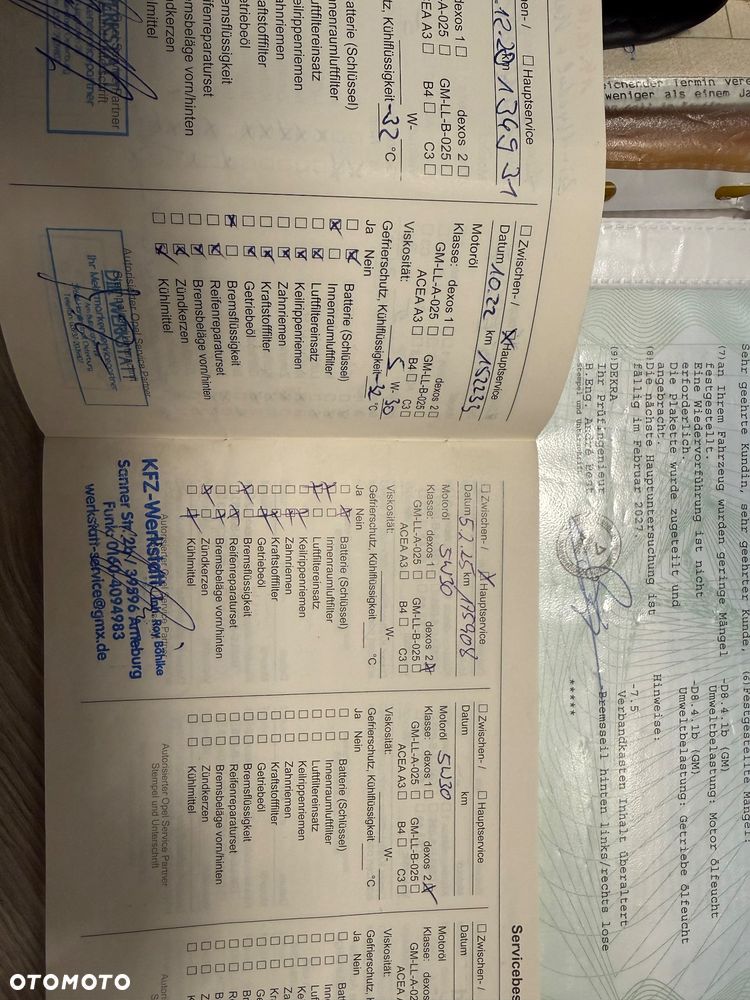 Zwischen- /
☐ Hauptservice
12.20
134931
dexos 1 ☐ dexos 2 ☐
GM-LL-A-025 ☐ GM-LL-B-025 ☐
ACEA A3 ☐ B4 ☐ C3 ☐
W-
Kühlflüssigkeit -32 °C
Batterie (Schlüssel)
Innenraumluftfilter
Luftfiltereinsatz
Keilrippenriemen
Zahnriemen
Kraftstofffilter
Getriebeöl
Bremsflüssigkeit
Reifenreparaturset
Bremsbeläge vorn/hinten
Zündkerzen
Kühlmittel
☐ Zwischen- / ☒ Hauptservice
Datum 10.22 km 152233
Motoröl
Klasse: dexos 1 ☐ dexos 2 ☐
GM-LL-A-025 ☐ GM-LL-B-025 ☐
ACEA A3 ☐ B4 ☐ C3 ☐
Viskosität: 5 W- 30
Gefrierschutz, Kühlflüssigkeit -32 °C
Ja Nein
☐ ☒ Batterie (Schlüssel)
☒ ☐ Innenraumluftfilter
☐ ☒ Luftfiltereinsatz
☐ ☒ Keilrippenriemen
☐ ☒ Zahnriemen
☐ ☒ Kraftstofffilter
☐ ☒ Getriebeöl
☒ ☐ Bremsflüssigkeit
☐ ☒ Reifenreparaturset
☐ ☒ Bremsbeläge vorn/hinten
☐ ☒ Zündkerzen
☐ ☒ Kühlmittel
Autorisierter Opel Service Partner
DIE WERKSTATT
Ihr Mehrmarkenservicepartner
☐ Zwischen- / ☒ Hauptservice
Datum 5.2.25 km 175908
Motoröl 5W30
Klasse: dexos 1 ☐ dexos 2 ☒
GM-LL-A-025 ☐ GM-LL-B-025 ☐
ACEA A3 ☐ B4 ☐ C3 ☐
Viskosität: W-
Gefrierschutz, Kühlflüssigkeit °C
Ja Nein
Batterie (Schlüssel)
Innenraumluftfilter
Luftfiltereinsatz
Keilrippenriemen
Zahnriemen
Kraftstofffilter
Getriebeöl
Bremsflüssigkeit
Reifenreparaturset
Bremsbeläge vorn/hinten
Zündkerzen
Kühlmittel
KFZ-Werkstatt Inh. Roy Böhlke
Sanner Str. 22b / 39596 Arneburg
Funk: 0160/4094983
werkstatt-service@gmx.de
☐ Zwischen- / ☐ Hauptservice
Datum km
Motoröl 5W30
Klasse: dexos 1 ☐ dexos 2 ☒
GM-LL-A-025 ☐ GM-LL-B-025 ☐
ACEA A3 ☐ B4 ☐ C3 ☐
Viskosität: W-
Gefrierschutz, Kühlflüssigkeit °C
Ja Nein
☐ ☐ Batterie (Schlüssel)
☐ ☐ Innenraumluftfilter
☐ ☐ Luftfiltereinsatz
☐ ☐ Keilrippenriemen
☐ ☐ Zahnriemen
☐ ☐ Kraftstofffilter
☐ ☐ Getriebeöl
☐ ☐ Bremsflüssigkeit
☐ ☐ Reifenreparaturset
☐ ☐ Bremsbeläge vorn/hinten
☐ ☐ Zündkerzen
☐ ☐ Kühlmittel
Autorisierter Opel Service Partner
Stempel und Unterschrift
Servicebes
☐ Zwischen- /
Datum
Motoröl
Klasse: dexos 1
GM-LL-A-02
ACEA A
Viskosität:
Gefrierschutz, K
Ja Nein
Termin vere
weniger als einem Ja
Sehr geehrte Kundin, sehr geehrter Kunde,
(7) an Ihrem Fahrzeug wurden geringe Mängel
festgestellt.
Eine Wiedervorführung ist nicht
erforderlich.
Die Plakette wurde zugeteilt und
angebracht.
(8) Die nächste Hauptuntersuchung ist
fällig im Februar 2027.
(9) DEKRA
Ihr Prüfingenieur
Stempel und Unterschrift
(6) Festgestellte Mängel:
-D8.4.1b (GM)
Umweltbelastung: Motor ölfeucht
-D8.4.1b (GM)
Umweltbelastung: Getriebe ölfeucht
Hinweise:
-7.5
Verbandkasten Inhalt überaltert
-Bremsseil hinten links/rechts lose
*****
OTOMOTO